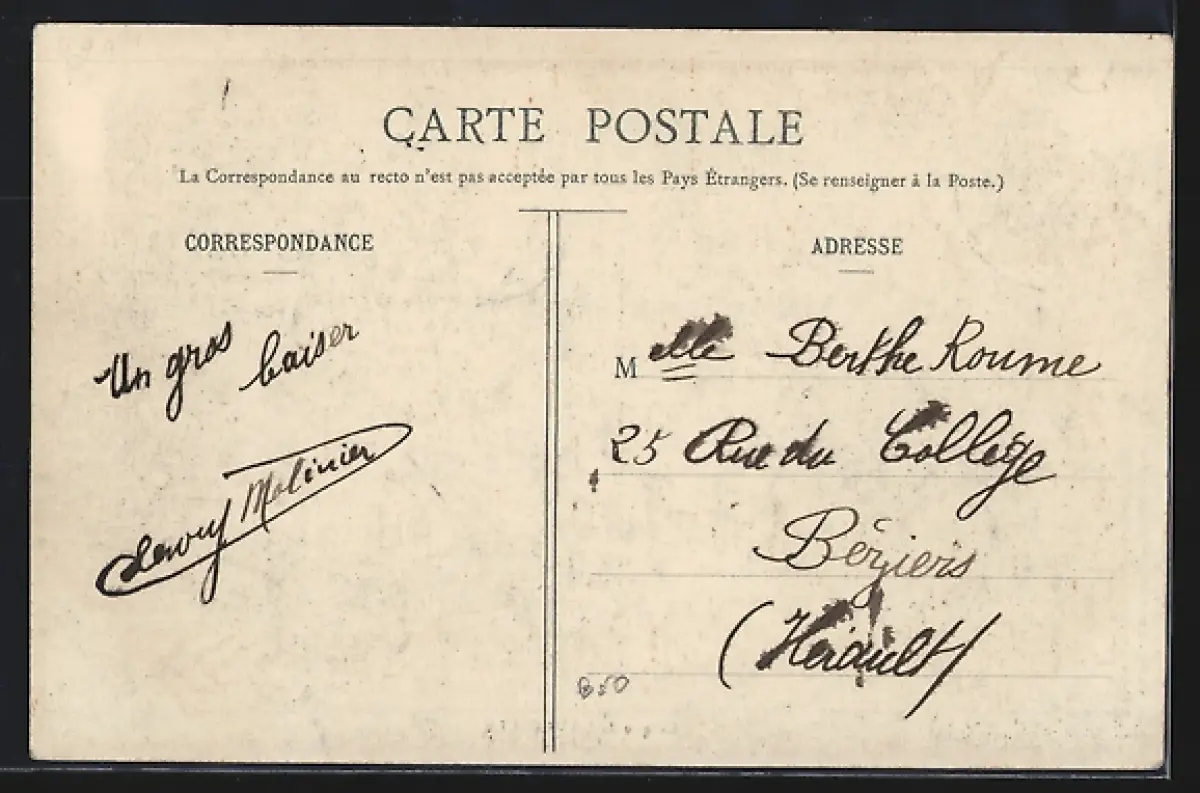 CARTE POSTALE
La Correspondance au recto n'est pas acceptée par tous les Pays Étrangers. (Se renseigner à la Poste.)
CORRESPONDANCE
Un gros baiser
Molinier
ADRESSE
Melle Berthe Roume
25 Rue du Collège
Béziers
(Hérault)
B50